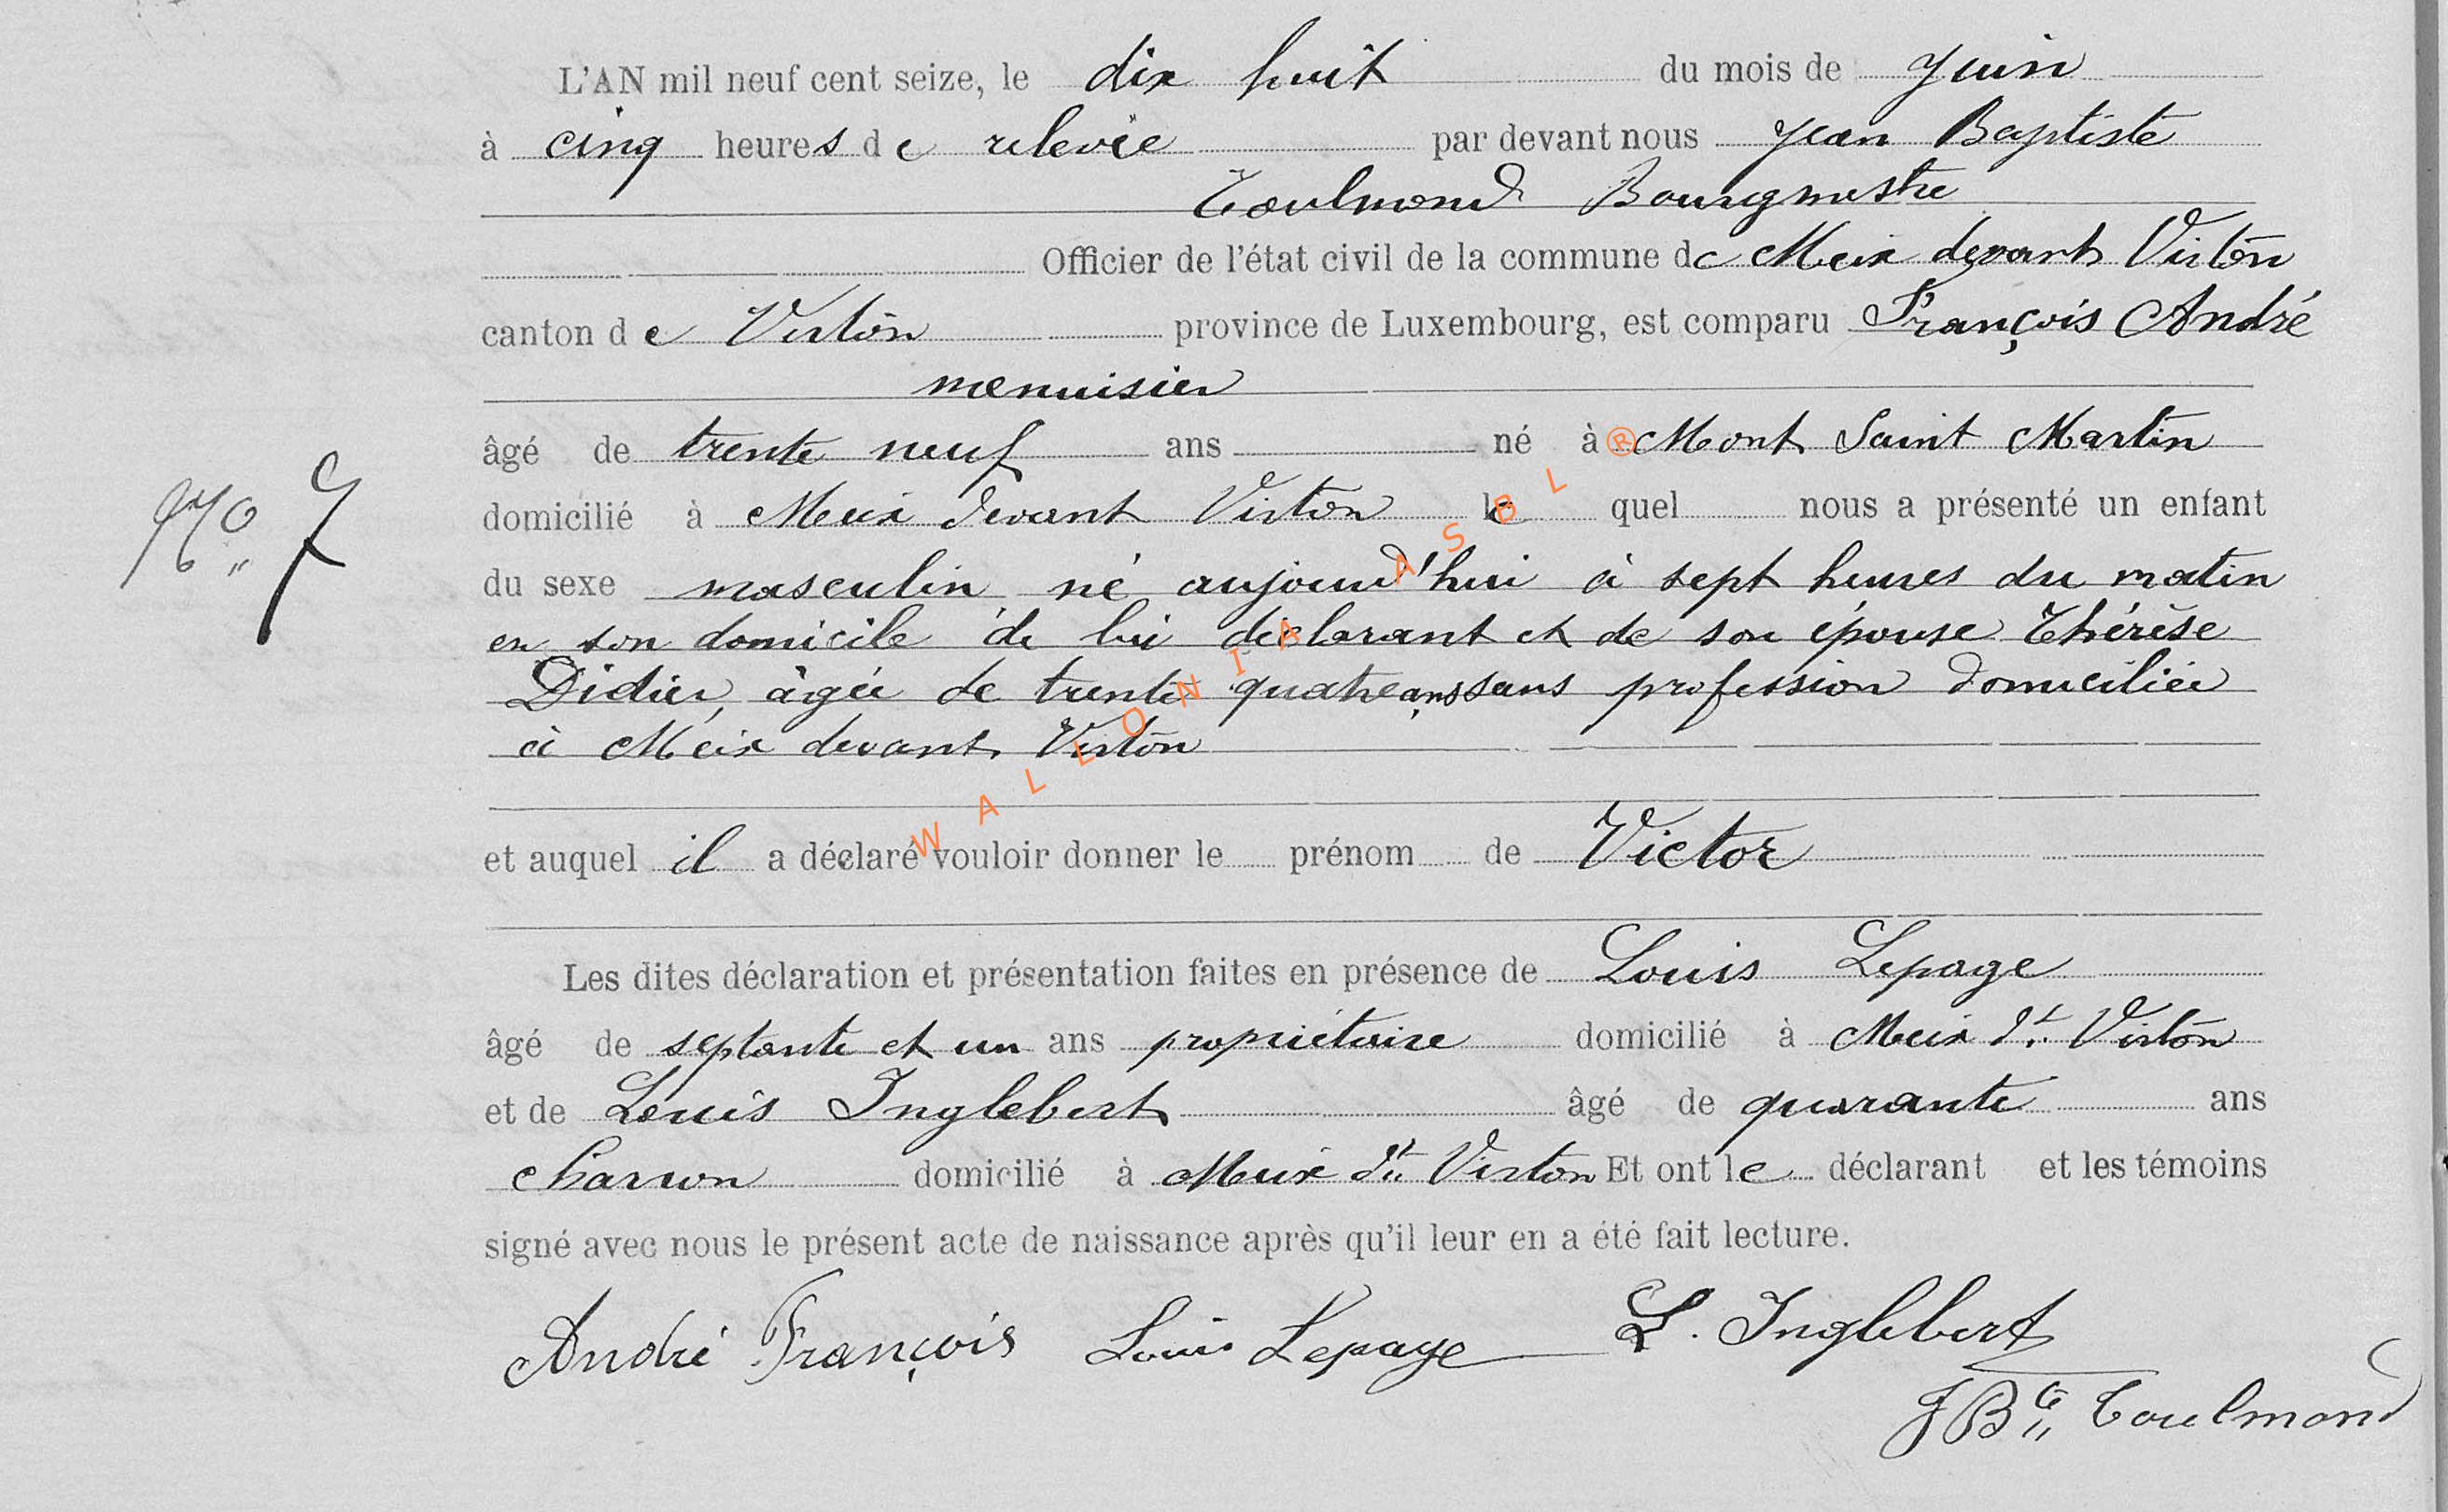 L'AN mil neuf cent seize, le dix huit du mois de Juin
à cinq heures de relevée par devant nous Jean Baptiste
Toulmond Bourgmestre
Officier de l'état civil de la commune de Meix devant Virton
canton de Virton province de Luxembourg, est comparu François André
menuisier
âgé de trente neuf ans né à Mont Saint Martin
No 7
domicilié à Meix devant Virton lequel nous a présenté un enfant
du sexe masculin né aujourd'hui à sept heures du matin
en son domicile de lui déclarant et de son épouse Thérèse
Didier, âgée de trente quatre ans sans profession domiciliée
à Meix devant Virton
WALLONIA ASBL ®
et auquel il a déclaré vouloir donner le prénom de Victor
Les dites déclaration et présentation faites en présence de Louis Lepage
âgé de septante et un ans propriétaire domicilié à Meix dt Virton
et de Louis Inglebert âgé de quarante ans
charron domicilié à Meix dt Virton Et ont le déclarant et les témoins
signé avec nous le présent acte de naissance après qu'il leur en a été fait lecture.
André François Louis Lepage L. Inglebert
J Bte Toulmond